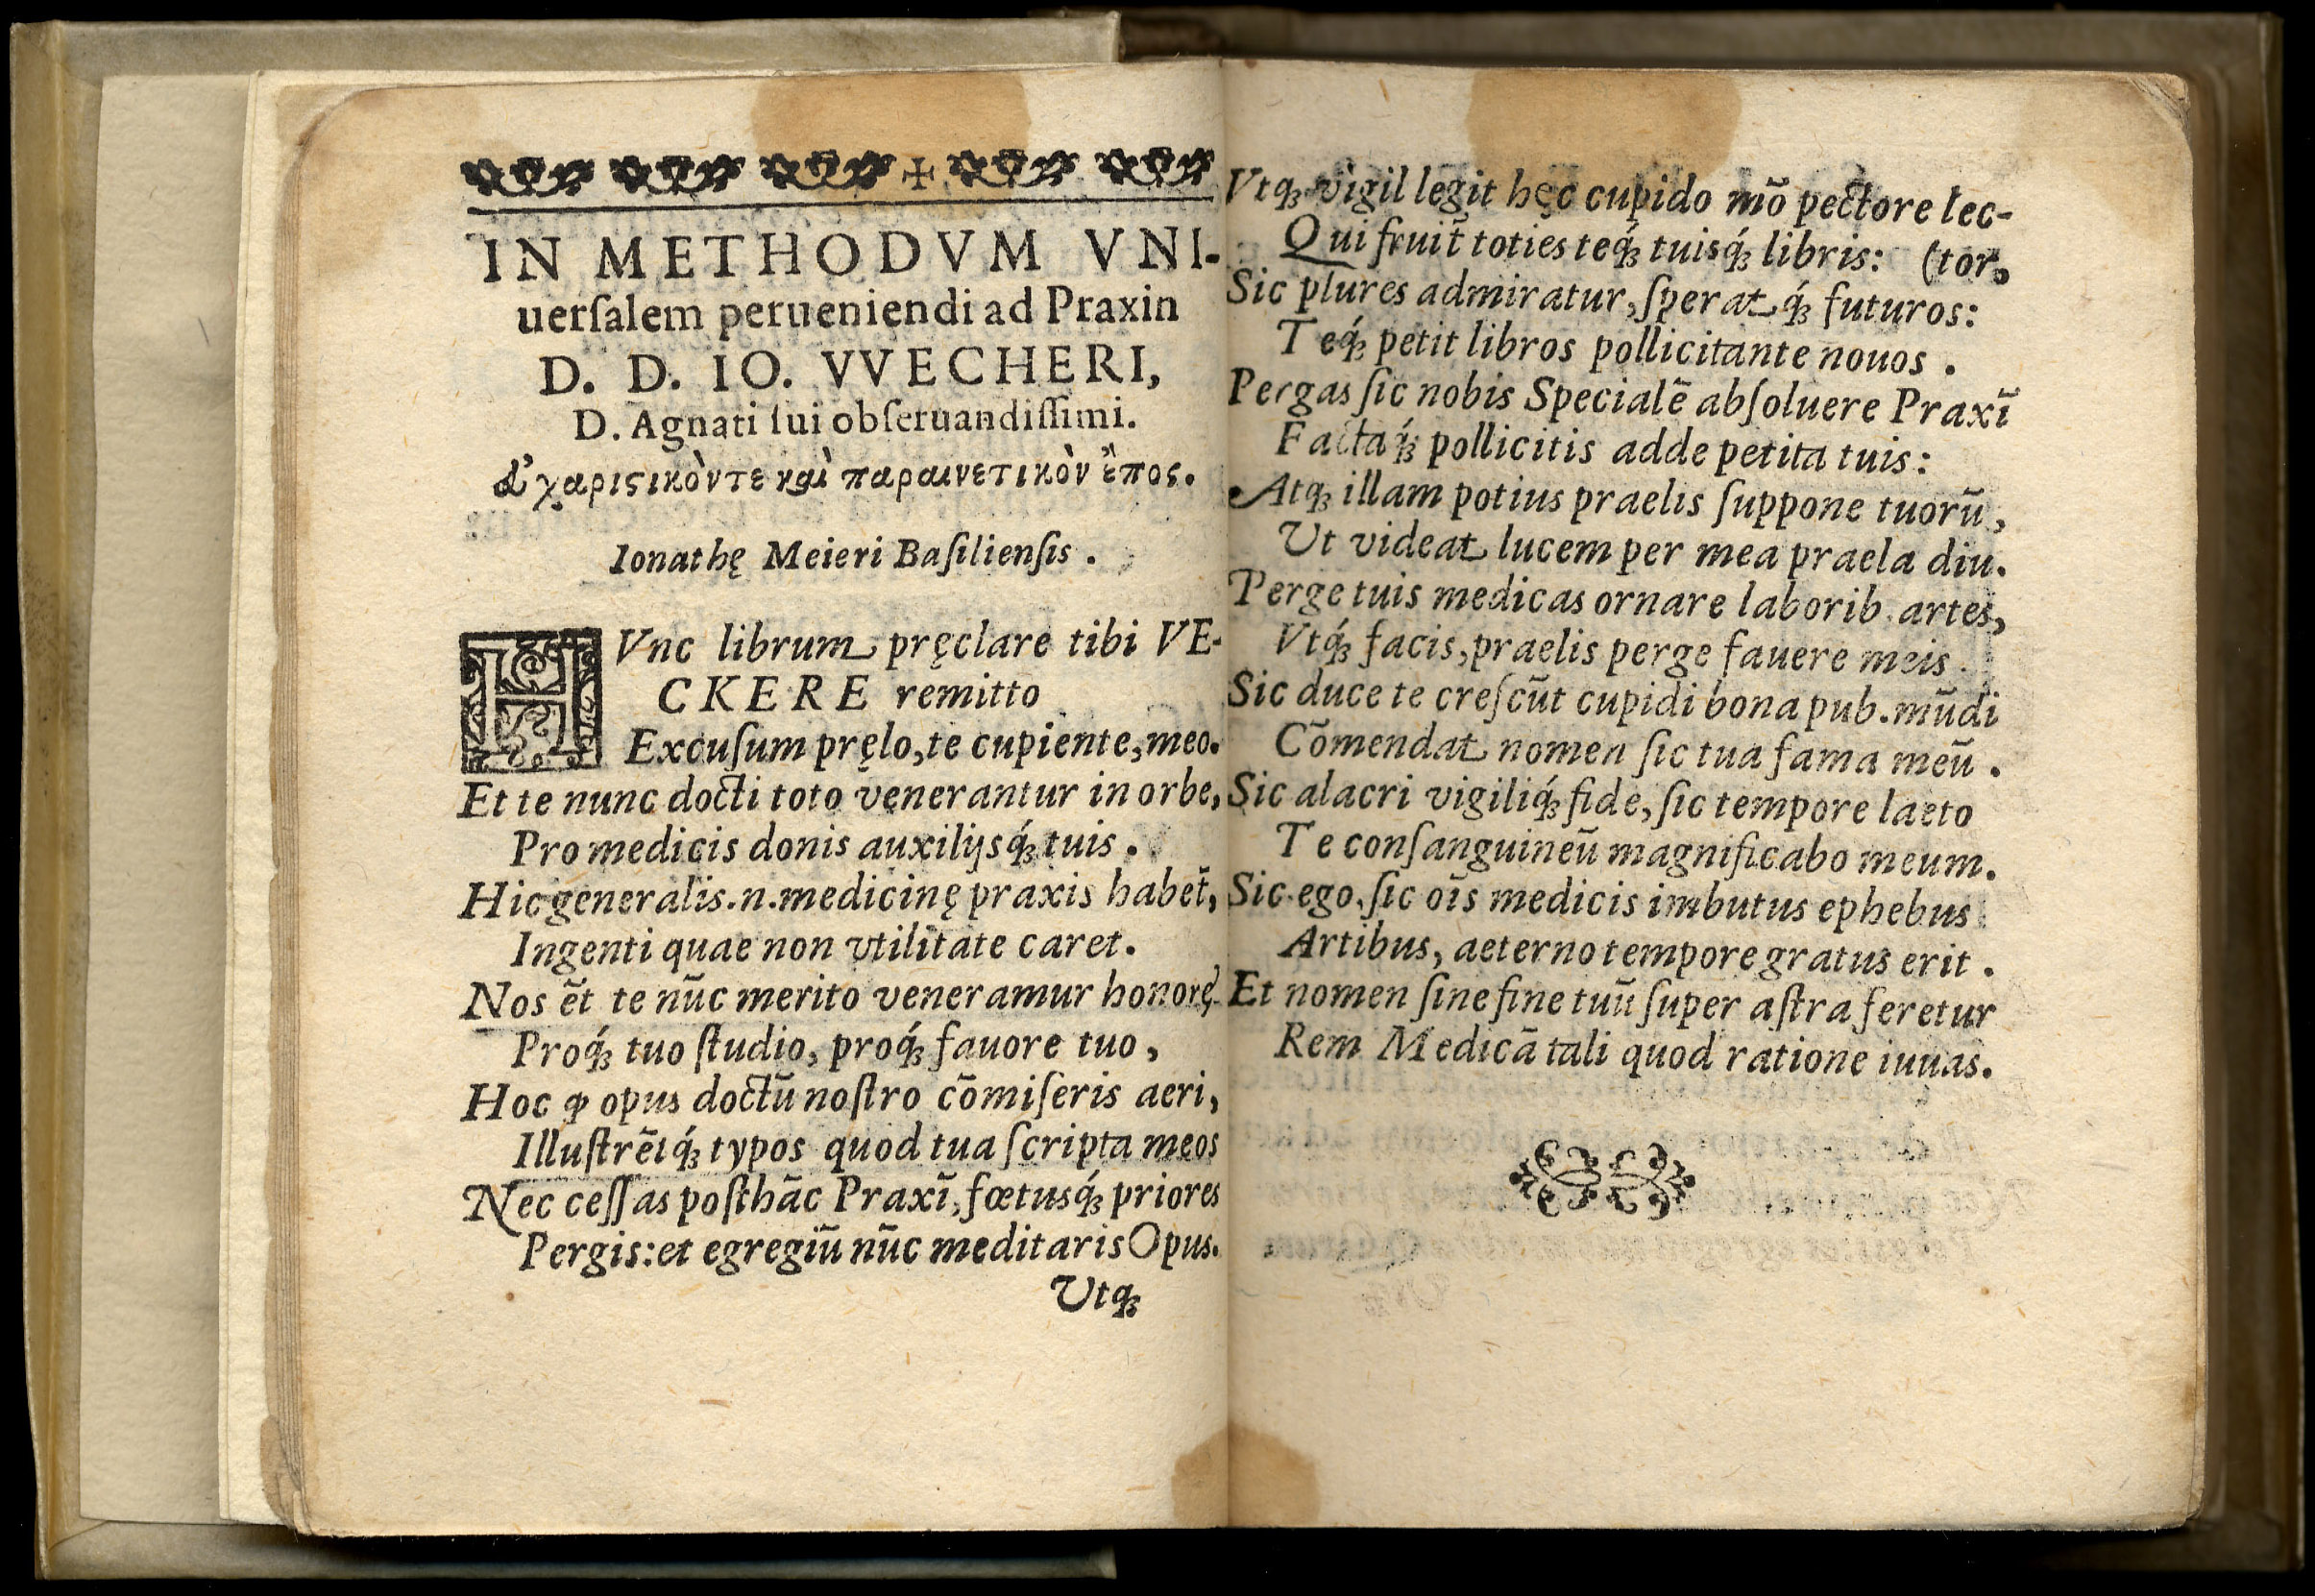 IN METHODVM VNI-
uerſalem perueniendi ad Praxin
D. D. IO. VVECHERI,
D. Agnati ſui obſeruandiſſimi.
εὐχαριςικὸντε καὶ παραινετικὸν ἔπος.
Ionathę Meieri Baſilienſis.
HVnc librum pręclare tibi VE-
CKERE remitto
Excuſum pręlo, te cupiente, meo.
Et te nunc docti toto venerantur in orbe,
Pro medicis donis auxilijsq́ꝫ tuis.
Hic generalis.n.medicinę praxis habet̃,
Ingenti quae non vtilitate caret.
Nos ẽt te nũc merito veneramur honorę
Proq́ꝫ tuo ſtudio, proq́ꝫ fauore tuo,
Hoc ꝙ opus doctũ noſtro cõmiſeris aeri,
Illuſtrẽtq́ꝫ typos quod tua ſcripta meos
Nec ceſſas poſthãc Praxĩ, fœtusq́ꝫ priores
Pergis: et egregiũ nũc meditaris Opus.
Utqꝫ
Vtqꝫ vigil legit hęc cupido mõ pectore lec-
Qui fruit̃ toties teq́ꝫ tuisq́ꝫ libris: (tor,
Sic plures admiratur, ſperat q́ꝫ futuros:
Teq́ꝫ petit libros pollicitante nouos.
Pergas ſic nobis Specialẽ abſoluere Praxĩ
Factaq́ꝫ pollicitis adde petita tuis:
Atqꝫ illam potius praelis ſuppone tuorũ,
Ut videat lucem per mea praela diu.
Perge tuis medicas ornare laborib. artes,
Vtq́ꝫ facis, praelis perge fauere meis.
Sic duce te creſcũt cupidi bona pub. mũdi
Cõmendat nomen ſic tua fama meũ.
Sic alacri vigiliq́ꝫ fide, ſic tempore laeto
Te conſanguineũ magnificabo meum.
Sic ego, ſic oĩs medicis imbutus ephebus
Artibus, aeterno tempore gratus erit.
Et nomen ſine fine tuũ ſuper aſtra feretur
Rem Medicã tali quod ratione iuuas.